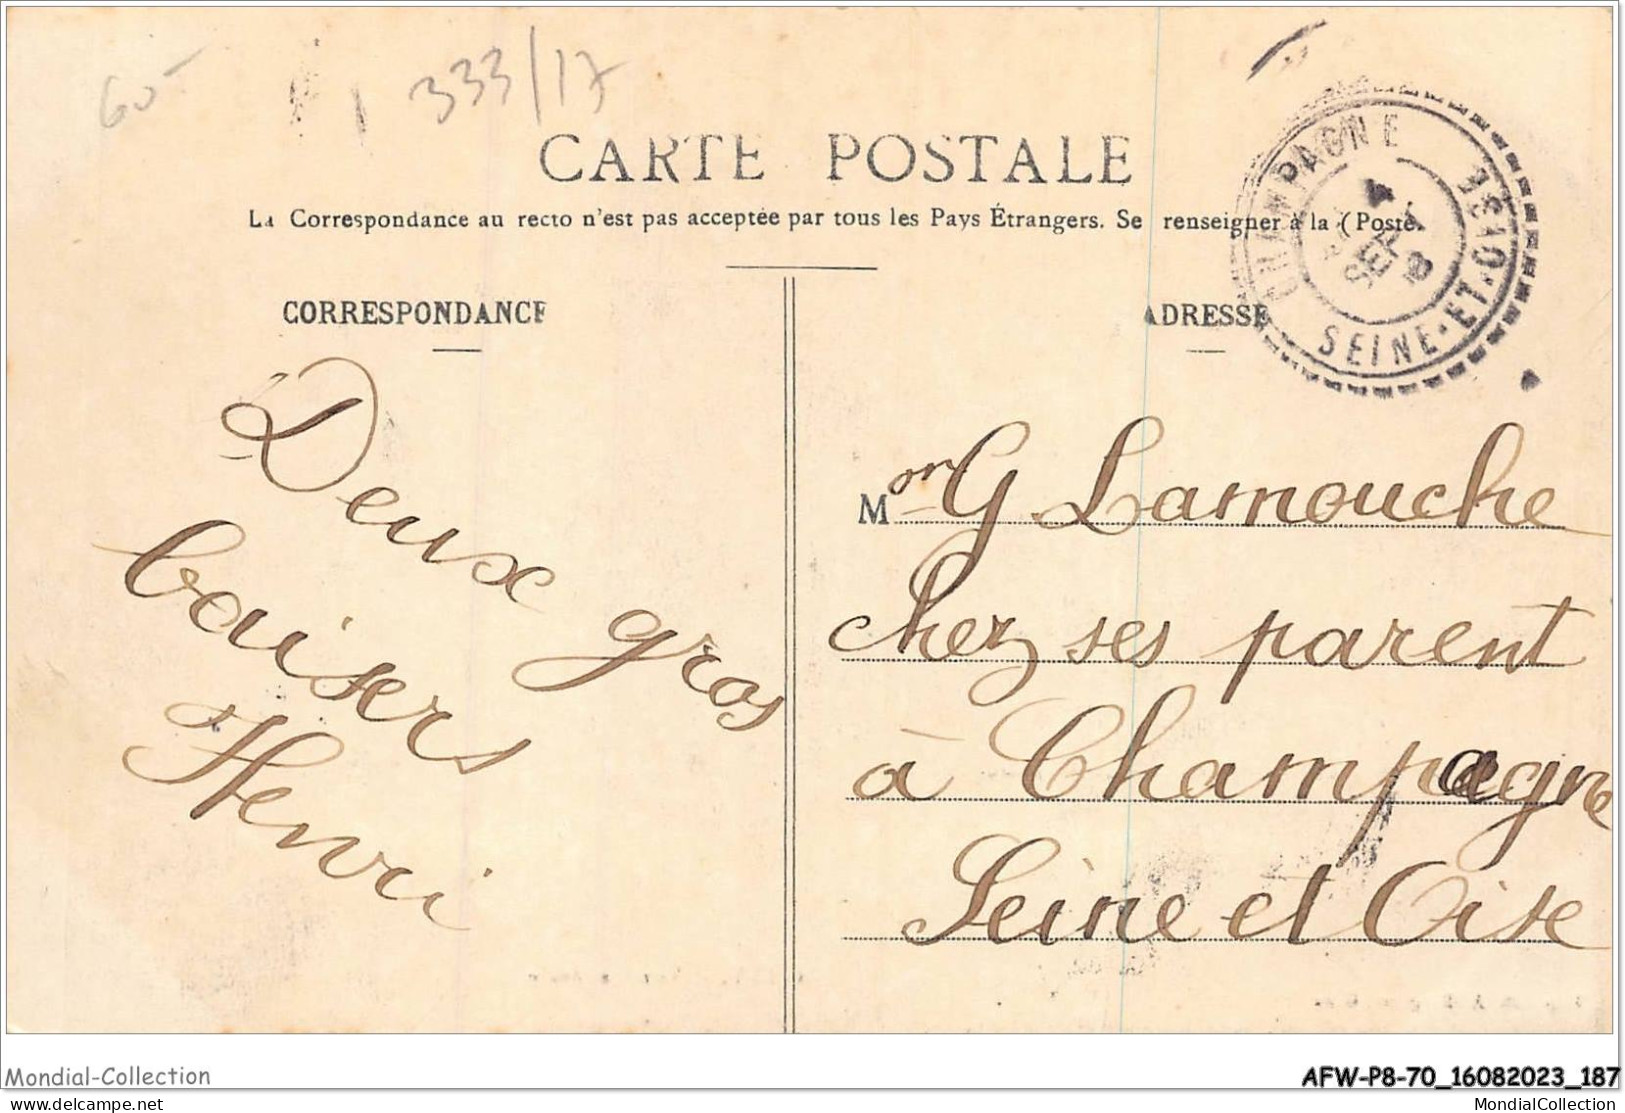 60-
333/17
CARTE POSTALE
La Correspondance au recto n'est pas acceptée par tous les Pays Étrangers. Se renseigner à la (Poste.
CORRESPONDANCE
ADRESSE
CHAMPAGNE
4
SEPT
SEINE-ET-OISE
Deux gros
baisers
Henri
Mon G Lamouche
chez ses parent
à Champagne
Seine et Oise
Mondial-Collection
AFW-P8-70_16082023_187
delcampe.net
MondialCollection